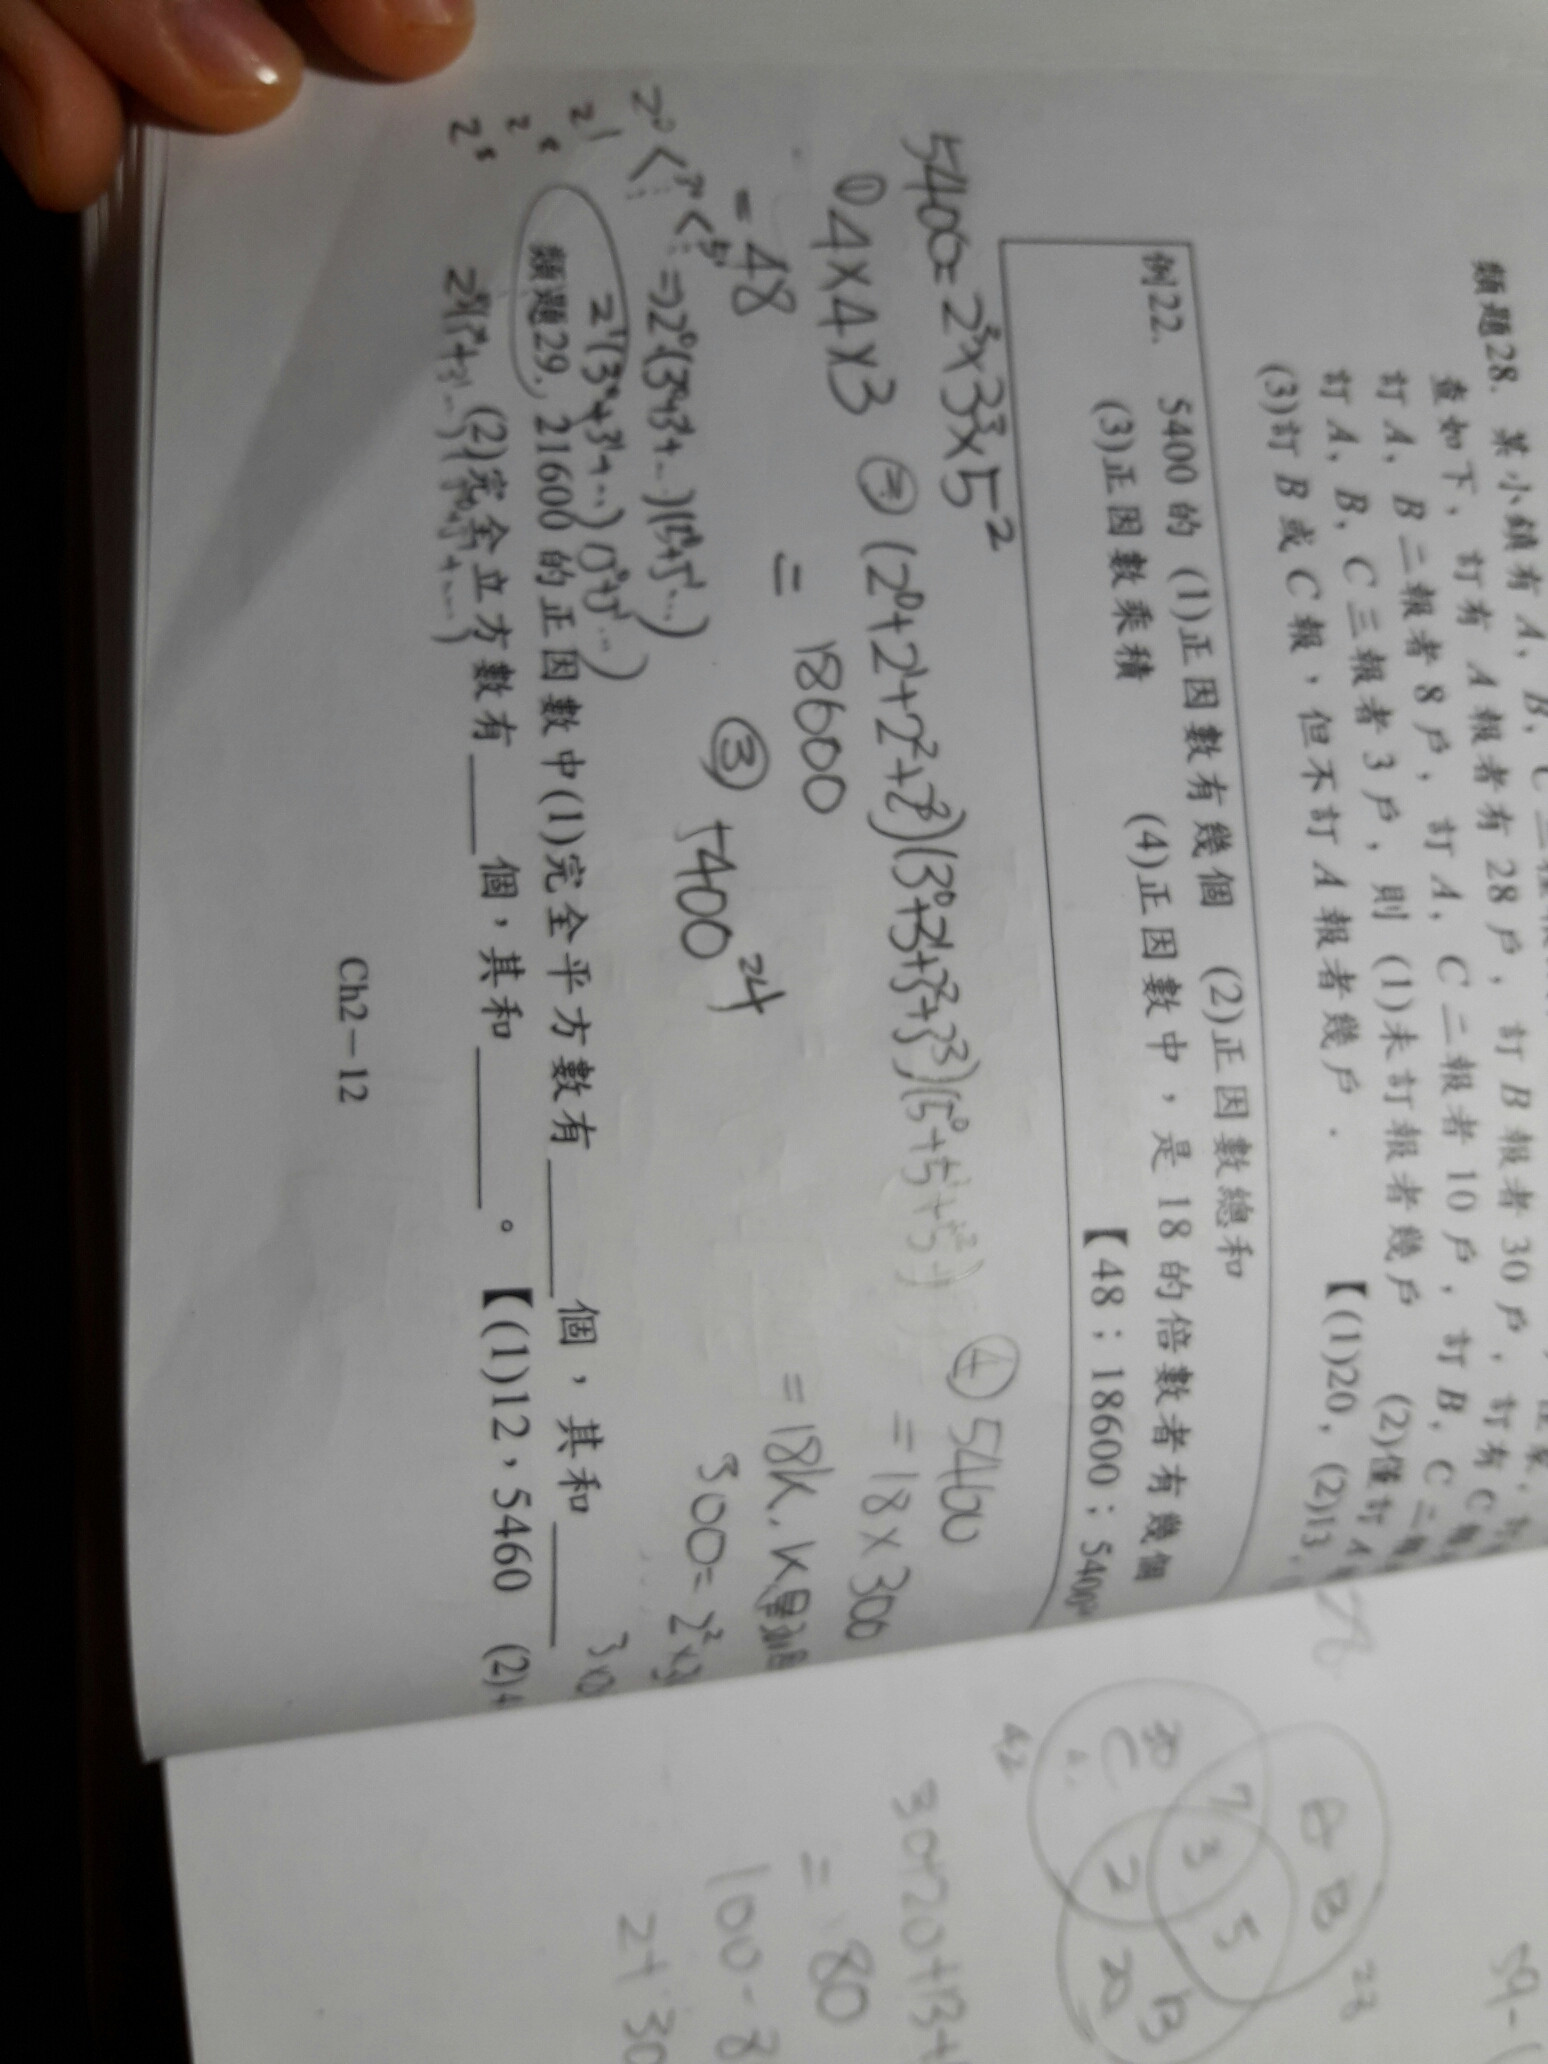 類題28. 某小鎮有 A, B, C
查如下, 訂有 A 報者有 28 戶, 訂 B 報者 30 戶, 訂有 C
訂 A, B 二報者 8 戶, 訂 A, C 二報者 10 戶, 訂 B, C 二
訂 A, B, C 三報者 3 戶, 則 (1)未訂報者幾戶 (2)僅訂 A
(3)訂 B 或 C 報, 但不訂 A 報者幾戶. 【(1)20, (2)13,
例22. 5400 的 (1)正因數有幾個 (2)正因數總和
(3)正因數乘積 (4)正因數中,是 18 的倍數者有幾個
【48;18600;5400²⁴
5400=2³×3³×5²
①4×4×3
=48
②(2⁰+2¹+2²+2³)(3⁰+3¹+3²+3³)(5⁰+5¹+5²)
=18600
③5400²⁴
④5400
=18×300
=18k, k
300=2²×3
2⁰
2¹
⇒2⁰(3⁰+3¹+...)(5⁰+5¹...)
2¹(3⁰+3¹+...)(5⁰+5¹...)
類題29. 21600 的正因數中(1)完全平方數有____個,其和____
(2)完全立方數有____個,其和____。【(1)12,5460 (2)4
Ch2-12
A
B
C
7
3
2
5
20
13
42
23
30+20+13+
=80
100-8
24 30
59-